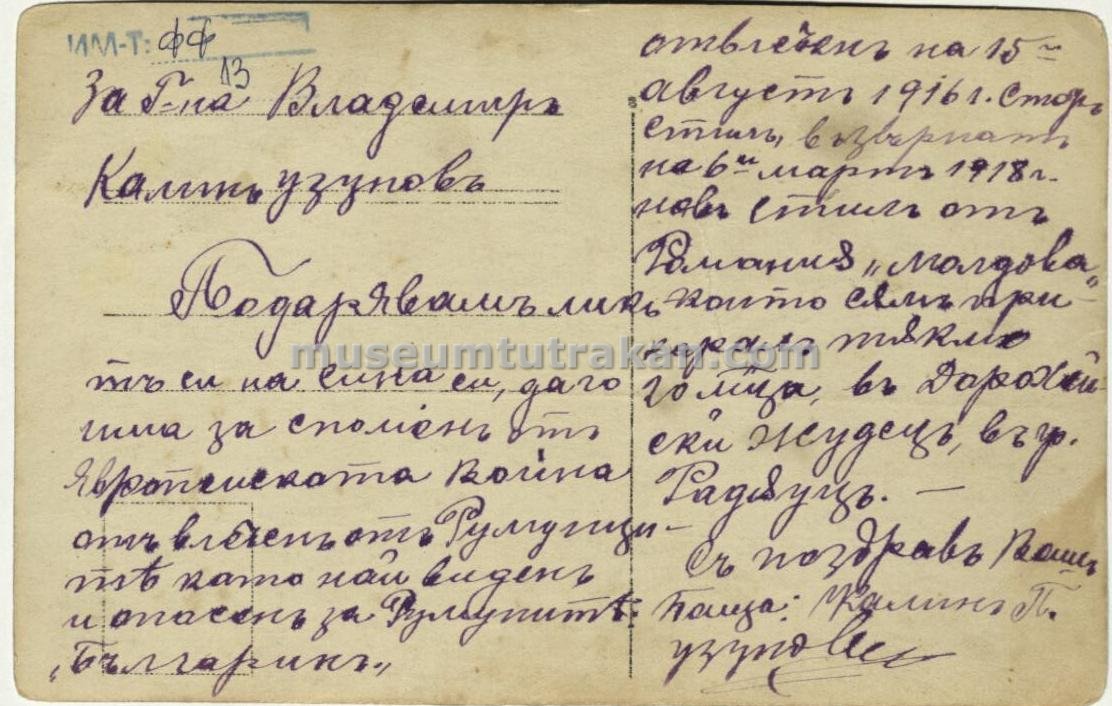 ИМ-Т: ФФ
13
За Г-на Владемиръ
Калинъ узуновъ
Подарявамъ ликъ
тъ си на сина си, да го
има за споменъ отъ
Европеиската война
отъ влеченъ отъ Румунци-
тѣ като най виденъ
и опасенъ за Румунитѣ.
„Българинъ„
отвлеченъ на 15й
августъ 1916 г. старъ
стилъ, възвърнатъ
на 6й мартъ 1918 г.
новъ стилъ отъ
Романия „Молдова„
които сямъ при-
каралъ тякмо
въ Дорохои-
ски Жудецъ, въ гр.
Радяуцъ. —
Съ поздравъ Вашъ
Баща: Калинъ П.
узуновъ
museumtutrakan.com